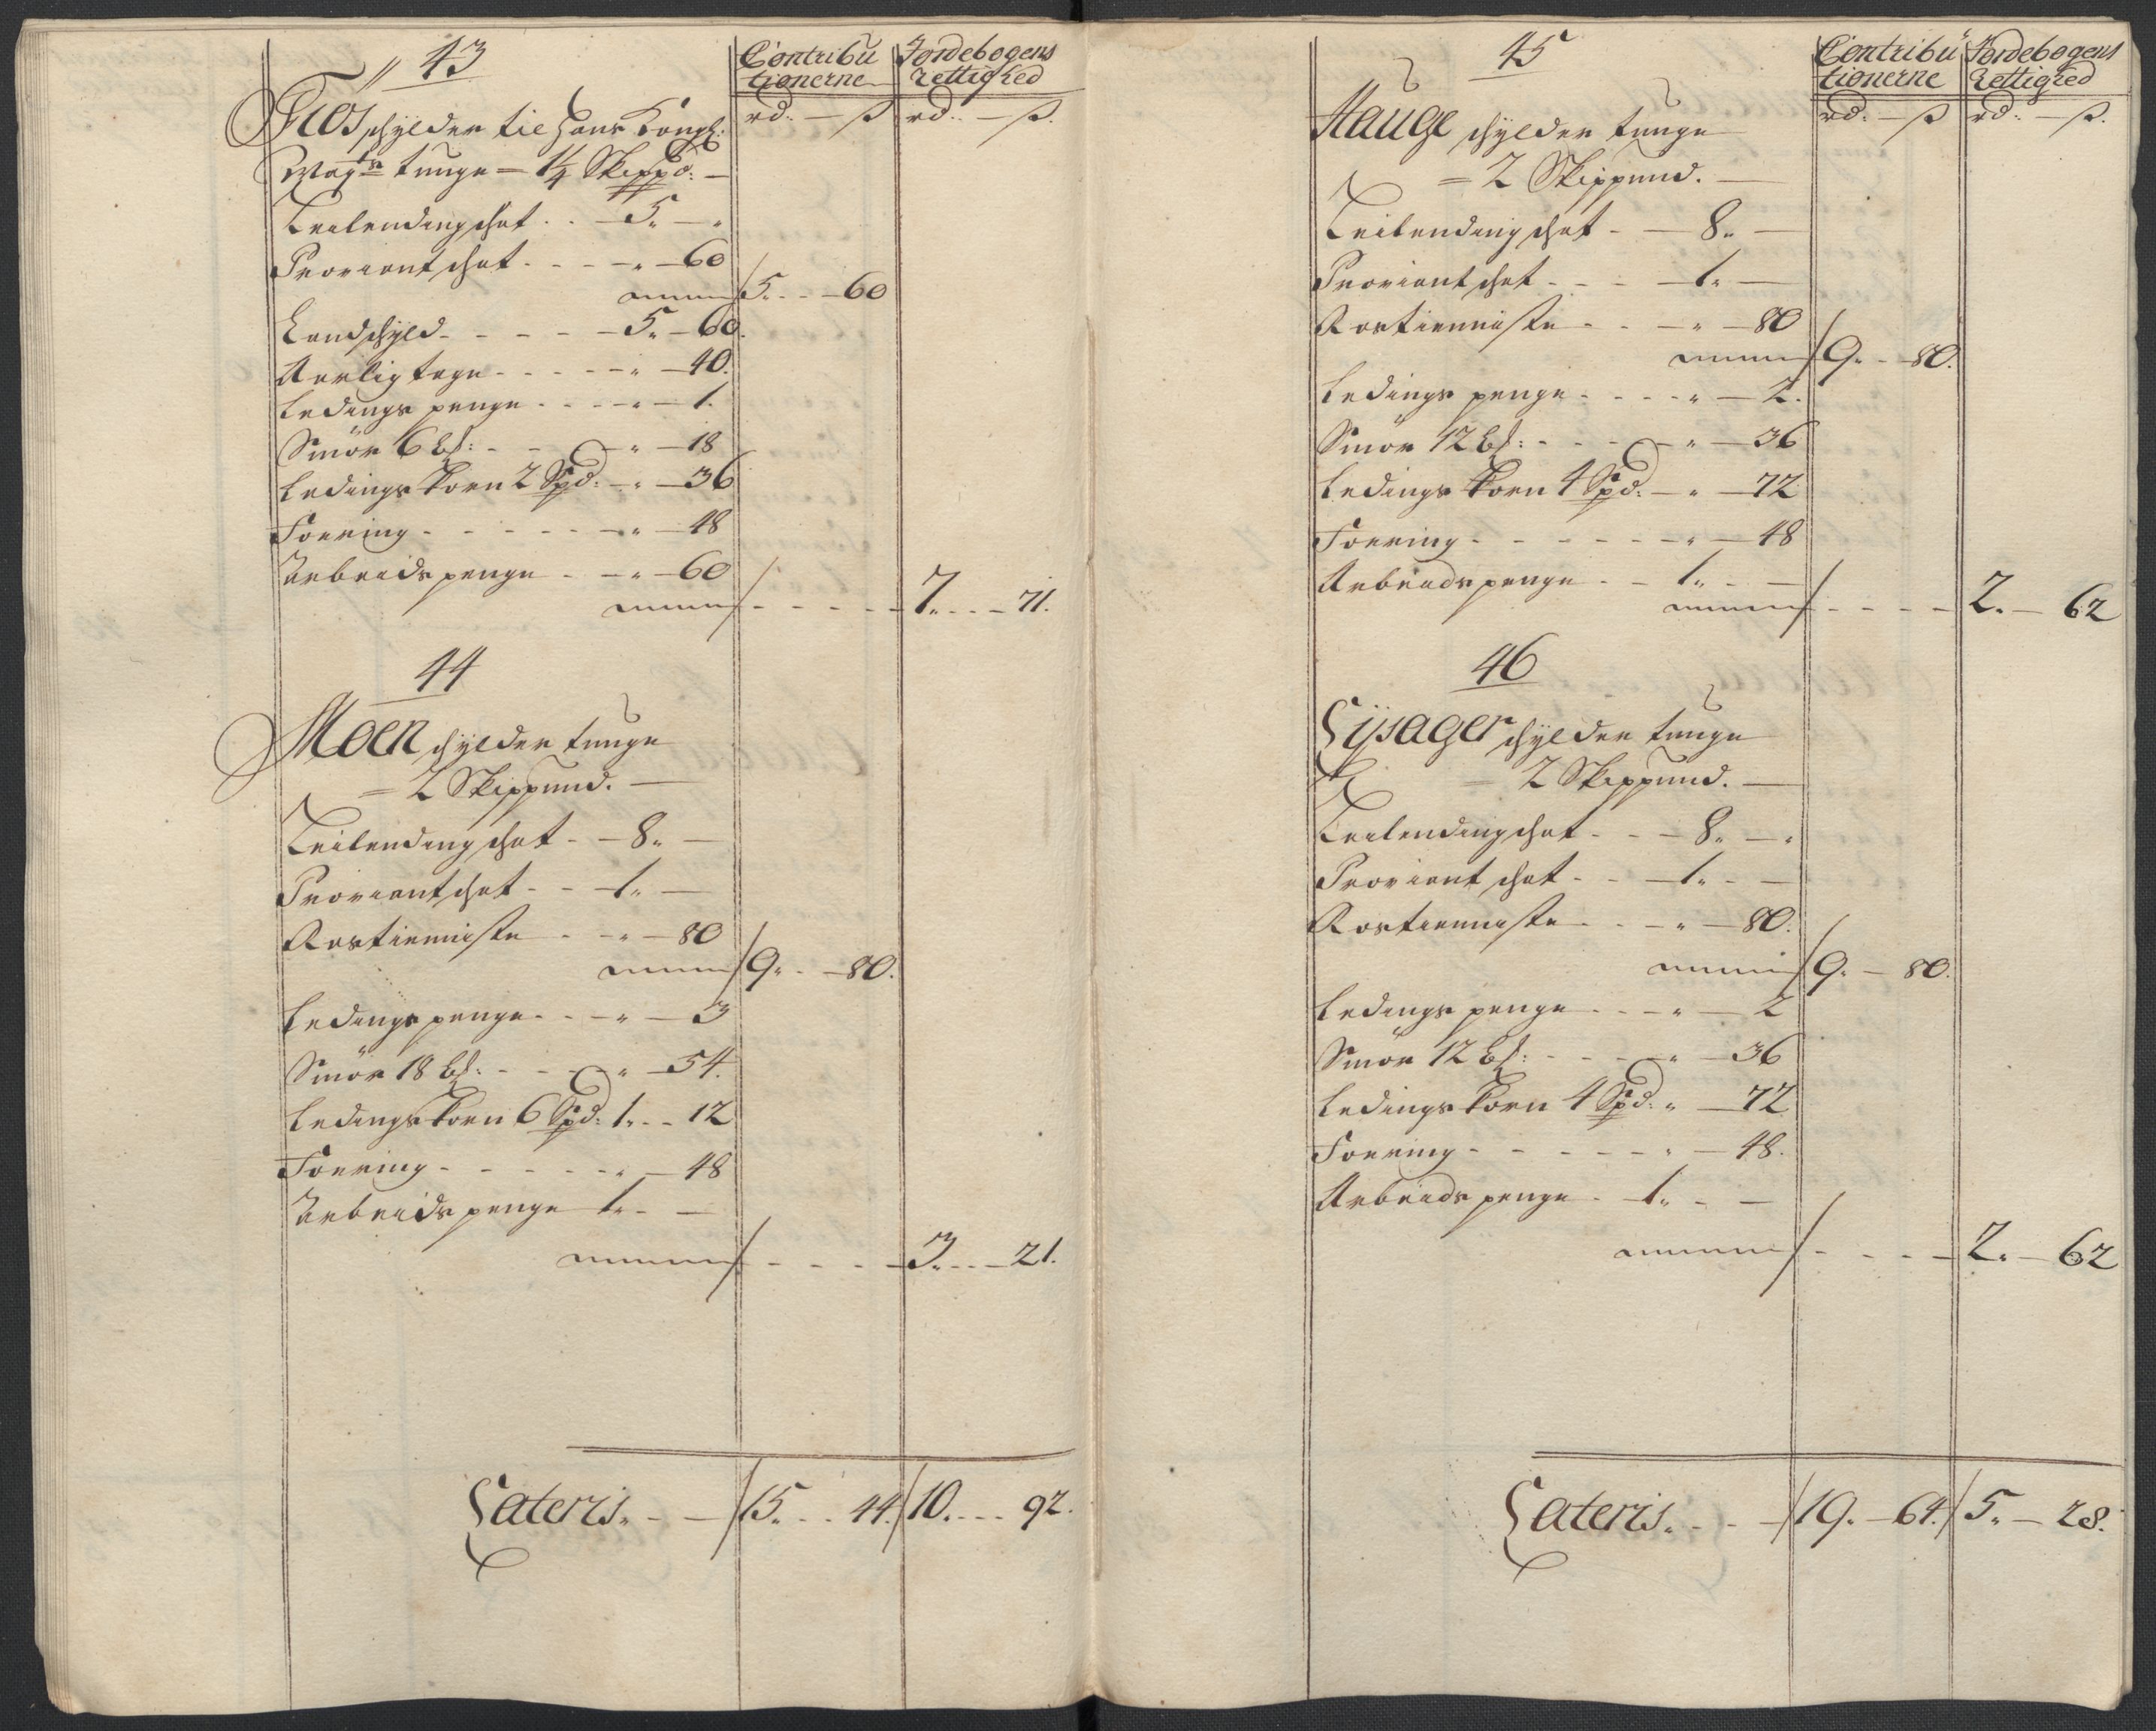 43
Contribu
tionerne
Jordebogens
Rettighed
rd: — ß rd: — ß.
Fios schylder til Hans Kongl:
Mayts tunge = 1¼ Skippd: —
Leilendingschat . . — 5. — "
Proviantschat . - - - " — 60
5. - - 60
Landschyld - - - - — 5. — 60.
Aarlig tage - - - - - " — 40.
Ledings penge - - - " — 1.
Smör 6 bs: - - - - " — 18
Ledings Korn 2 Spd: — " — 36
Foering - - - - - - " — 48
Arbeids penge - — " — 60
7. - - - 71.
44
Moen schylder tunge
= 2 Skippund. —
Leilendingschat - — 8. —
Proviantschat - - — 1. —
Rostienniste - — " — 80
9. - - 80.
Ledings penge - - — " — 3
Smör 18 bs: - - - - " — 54.
Ledings Korn 6 Spd: 1. - - 12
Foering - - - - - - " — 48
Arbeids penge 1. - —
3. - - - 21.
Lateris. - — 15. - - 44. 10. - - - 92.
45
Contribu
tionerne
Jordebogens
Rettighed
rd: — ß rd: — ß.
Hauge schylder tunge
= 2 Skippund. —
Leilendingschat - — 8. —
Proviantschat - - - — 1. —
Rostienniste - - — " — 80
9. - - 80.
Ledings penge - - - - " — 2.
Smör 12 bs: - - - — " — 36
Ledings Korn 4 Spd: — " — 72
Foering - - - - - — " — 48
Arbeids penge - - 1. - —
2. — 62
46
Lysager schylder tunge
= 2 Skippund. —
Leilendingschat - - — 8. — "
Proviantschat - - — 1. - —
Rostienniste - - — " — 80.
9. — 80.
Ledings penge - - — " — 2
Smör 12 bs: - - - — " — 36
Ledings Korn 4 Spd: " — 72
Foering - - - - - — " — 48.
Arbeids penge - 1. - —
2. — 62
Lateris. - - — 19. — 64. 5. — 28.